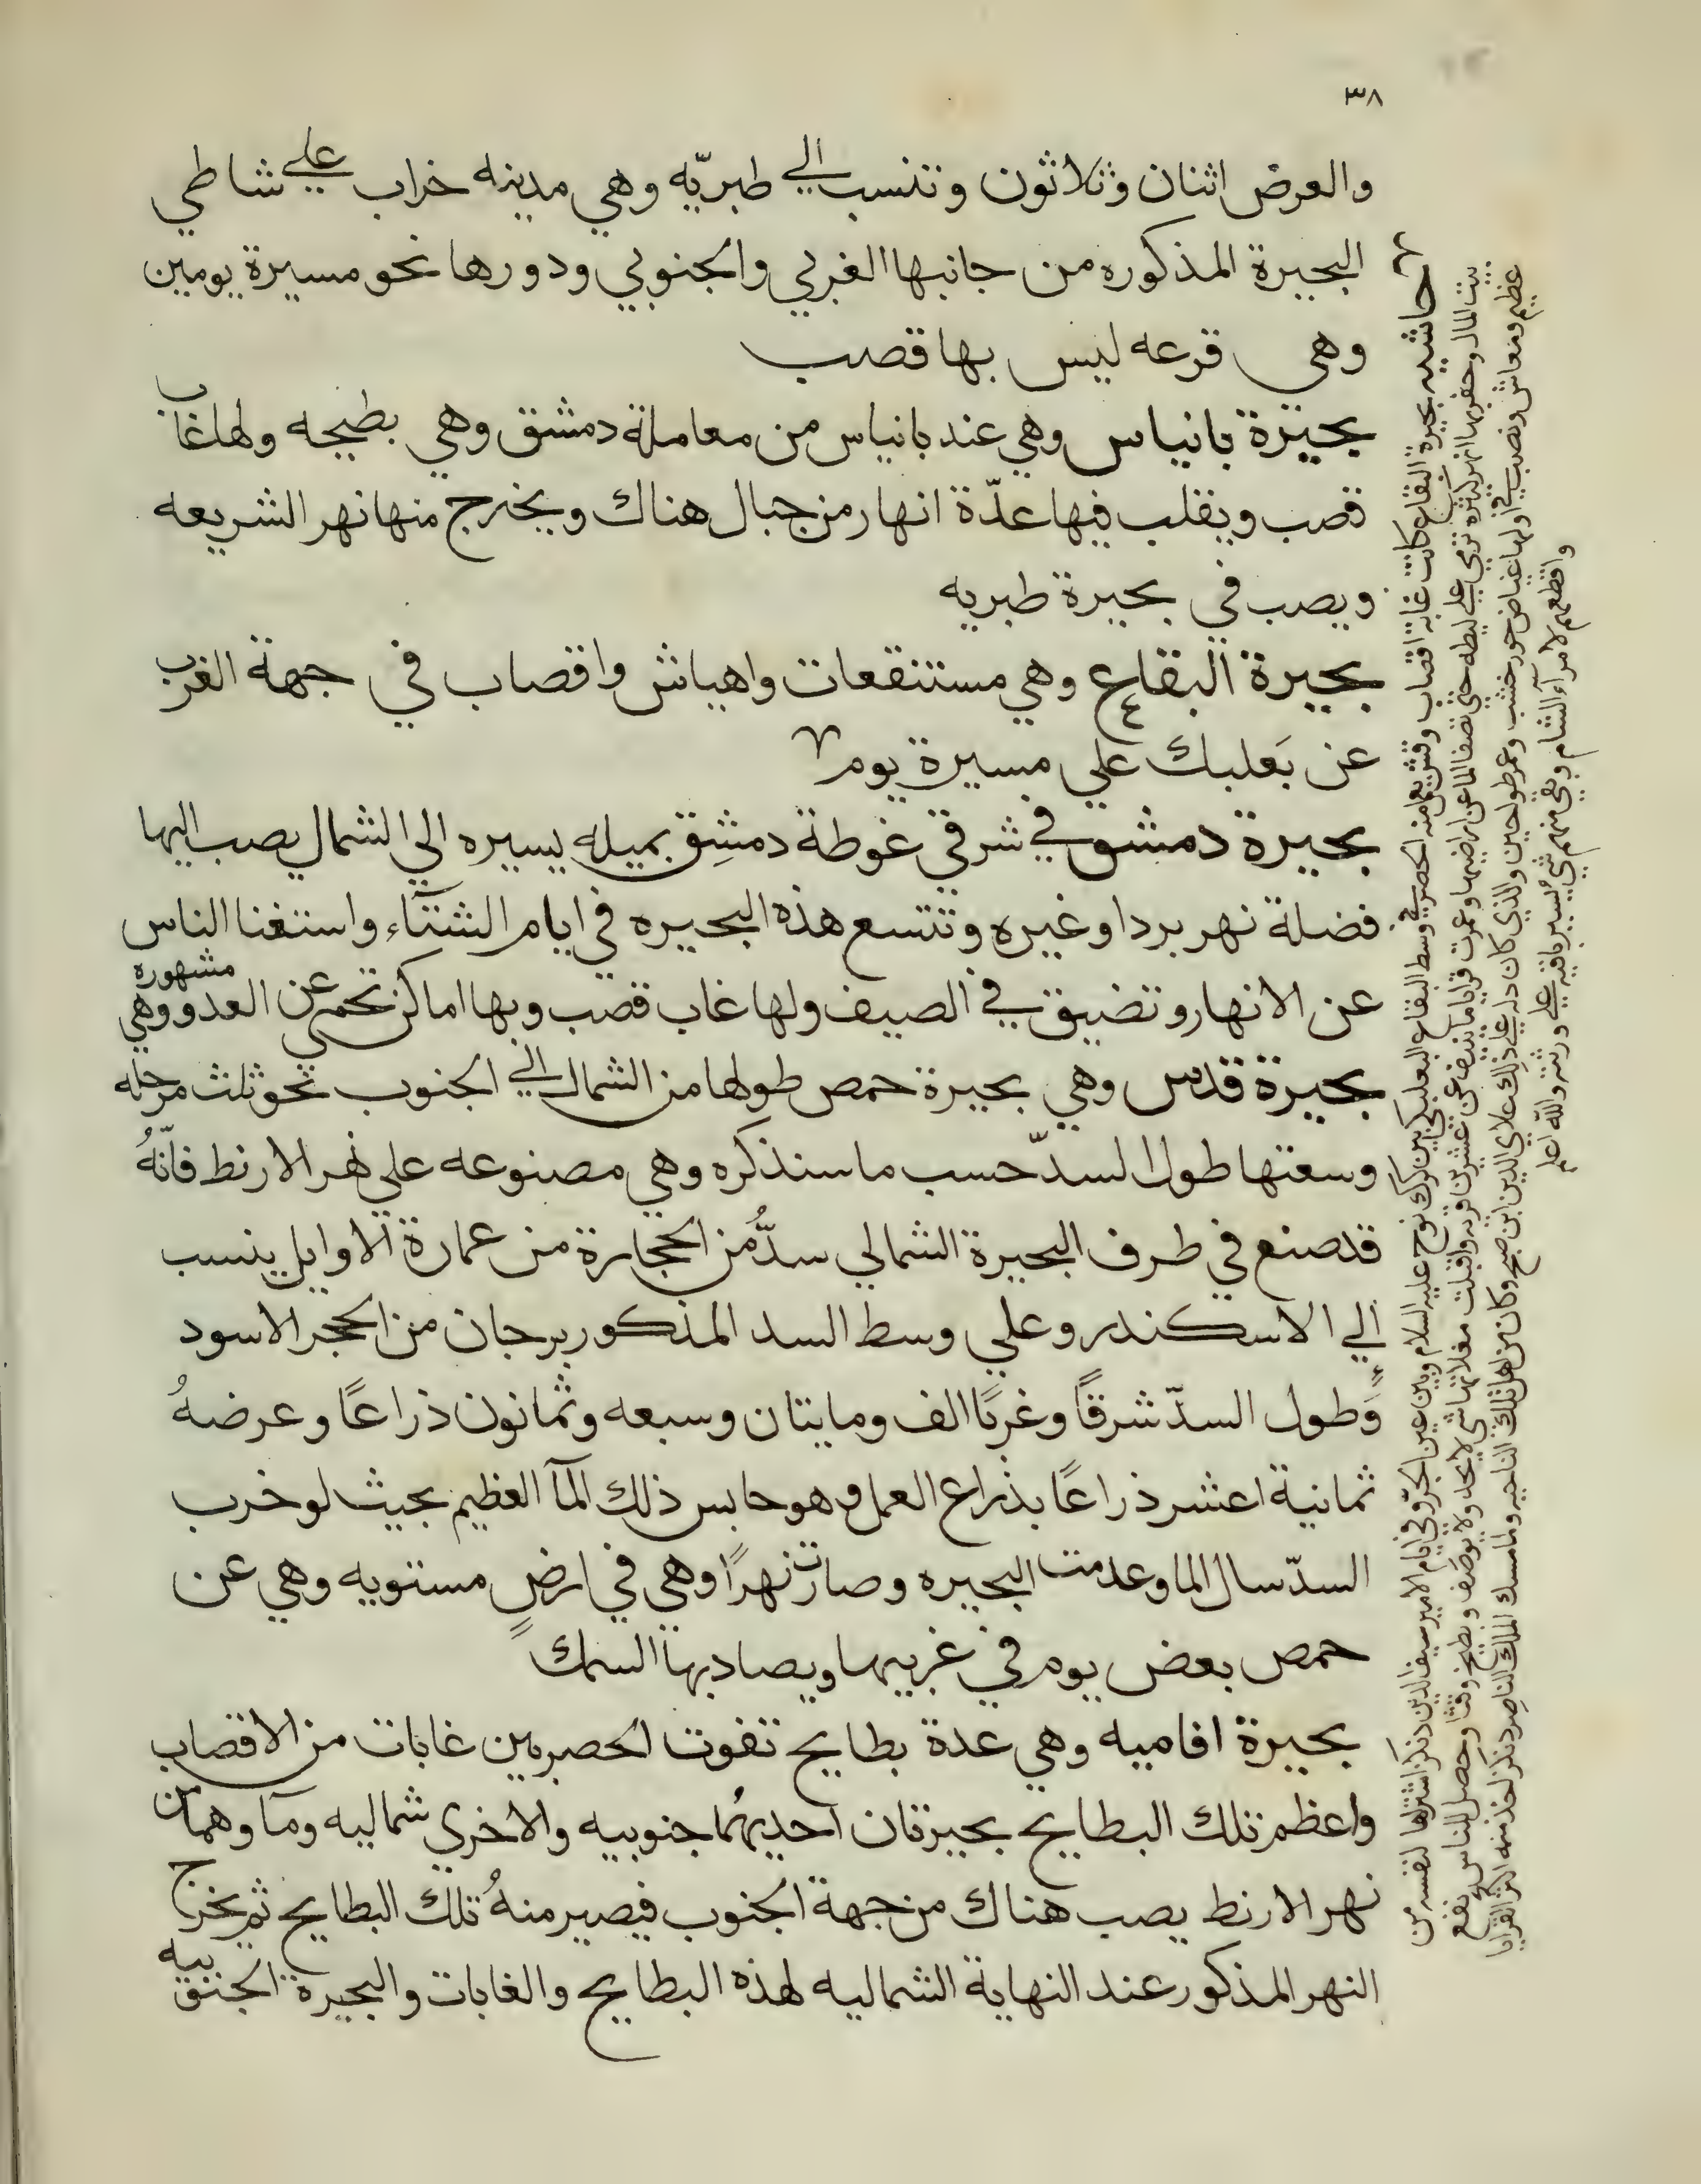 ٣٨
والعرض اثنان وثلاثون وتنسب الي طبريّه وهي مدينه خراب علي شاطي
البحيرة المذكوره من جانبها الغربي والجنوبي ودورها نحو مسيرة يومين
وهي قرعه ليس بها قصب
بحيرة بانياس وهي عند بانياس من معاملة دمشق وهي بطيحه ولها غاب
قصب ويقلب فيها عدّة انهار من جبال هناك ويخرج منها نهر الشريعه
ويصب في بحيرة طبريه
بحيرة البقاع وهي مستنقعات واهياش واقصاب في جهة الغرب
عن بَعلبك علي مسيرة يوم
بحيرة دمشق في شرقي غوطة دمشِق بميله يسيره الي الشمال يصب اليها
فضلة نهر بردا وغيره وتتسع هذه البحيره في ايام الشتآء واستغنا الناس
عن الانهار وتضيق في الصيف ولها غاب قصب وبها اماكن تحمي عن العدو وهي مشهوره
بحيرة قدس وهي بحيرة حمص طولها من الشمال الي الجنوب نحو ثلث مرحله
وسعتها طول السدّ حسب ما سنذكره وهي مصنوعه علي نهر الارنط فانّهُ
قد صنع في طرف البحيرة الشمالي سدٌّ من الحجارة من عمارة الاوايل ينسب
الي الاسكندر وعلي وسط السد المذكور برجان من الحجر الاسود
وَطول السدّ شرقًا وغربًا الف ومايتان وسبعه وثمانون ذراعًا وعرضهُ
ثمانية اعشر ذراعًا بذراع العمل وهو حابس ذلك المآ العظيم بحيث لو خرب
السدّ سال الما وعدمت البحيره وصارت نهرًا وهي في ارضٍ مستويه وهي عن
حمص بعض يوم في غربيها ويصاد بها السمك
بحيرة افاميه وهي عدة بطايح تفوت الحصر بين غابات من الاقصاب
واعظم تلك البطايح بحيرتان احديهُما جنوبيه والاخري شماليه ومآوهما من
نهر الارنط يصب هناك من جهة الجنوب فيصير منهُ تلك البطايح ثم يخرج
النهر المذكور عند النهاية الشماليه لهذه البطايح والغابات والبحيرة الجنوبيه
حاشيه بحيرة البقاع كانت غابة اقصاب وقش يعمل منه الحصر في وسط البقاع البعلبكي بين كرك نوح عليه السلام وبين عين الجرّ وفي ايام الامير سيف الدين دنكز اشتراها لنفسه من
بيت المال وحفر بها انهر كثيره ترمي علي ليطه حتي نصفا الما عن ارضيها وعمرت قرايا ما ينيف عن عشرين قريه واقبلت مغلاتها شي لا يحد ولا يوصف وبطيخ وقثا وحصل للناس نفع
عظيم ومعاش ونصب في اولها غياض حور خشب وعمر طواحين والذي كان دله علي ذلك علاي الدين ابن صبح وكان من اهل تلك الناحيه ولما مسك الملك الناصر دنكز اخذ منه اكثر القرايا
واقطعهم لامرآء الشام وبقي منهم شي يسير باقيه علي ورثته والله اعلم